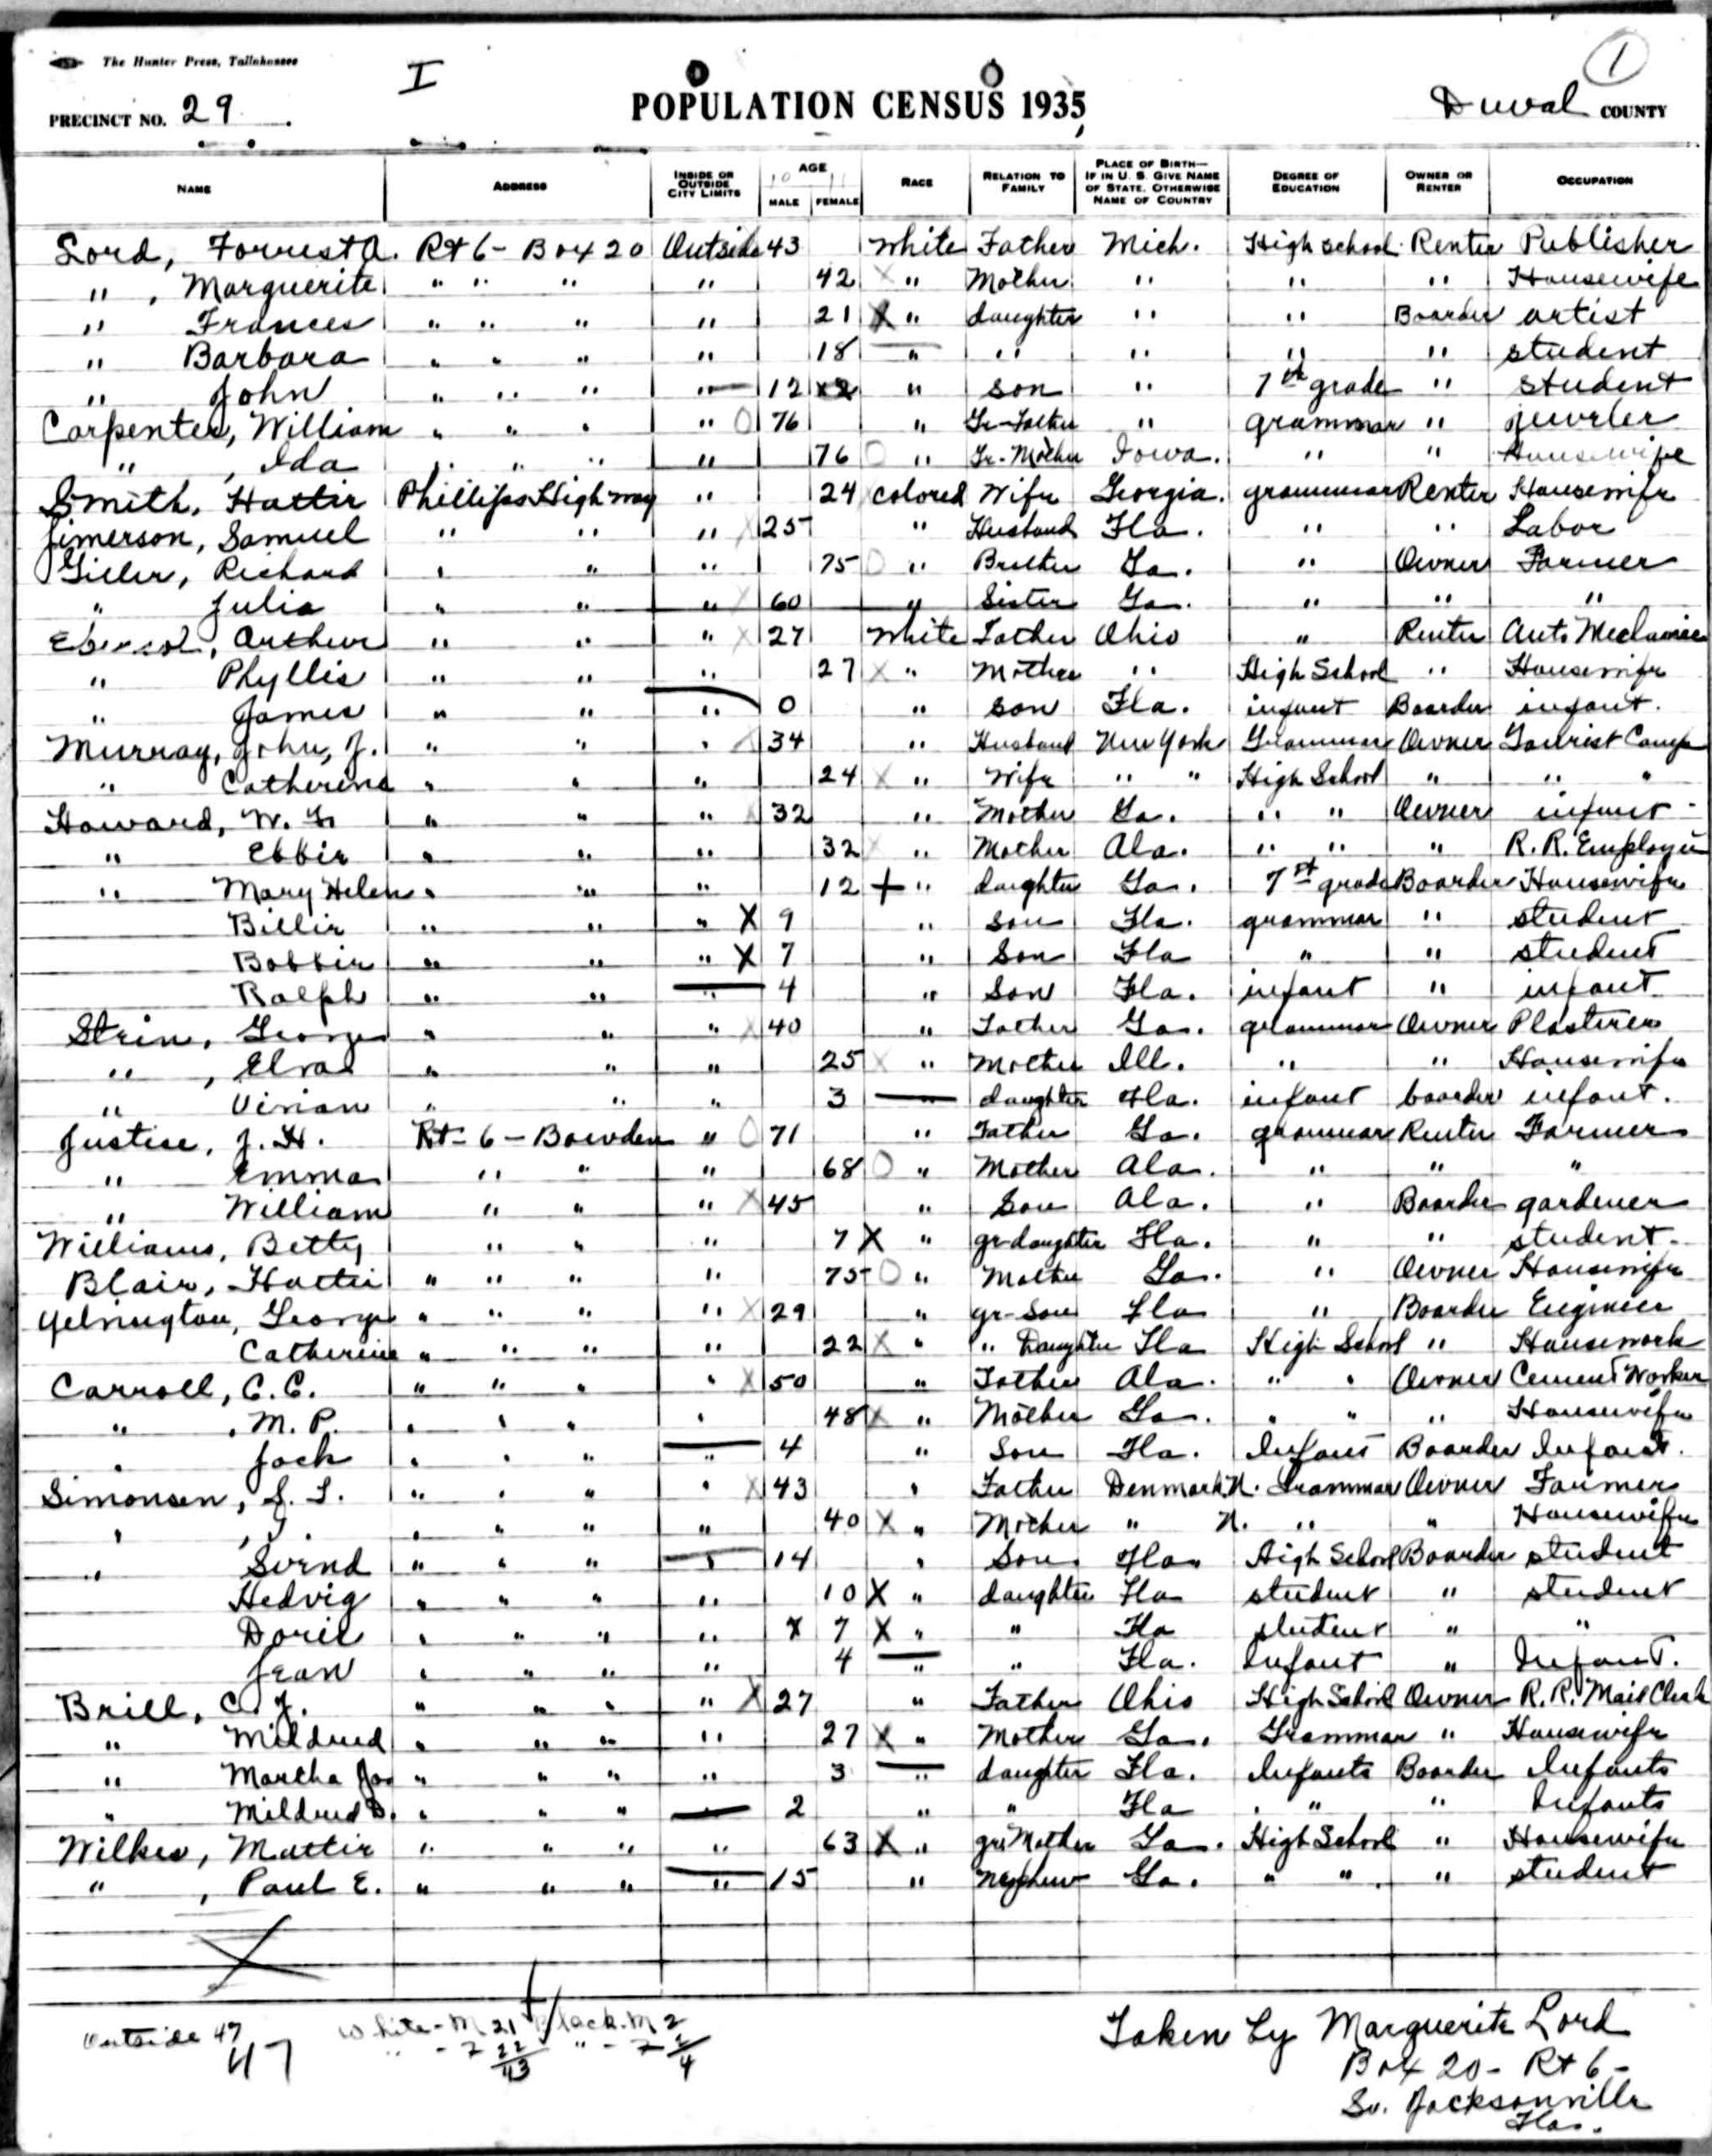 The Hunter Press, Tallahassee
I
1
PRECINCT NO. 29.
POPULATION CENSUS 1935
Duval COUNTY
NAME ADDRESS INSIDE OR OUTSIDE CITY LIMITS AGE MALE FEMALE RACE RELATION TO FAMILY PLACE OF BIRTH—IF IN U. S. GIVE NAME OF STATE. OTHERWISE NAME OF COUNTRY DEGREE OF EDUCATION OWNER OR RENTER OCCUPATION
10 11
Lord, Forrest A. Rt 6 - Box 20 Outside 43 White Father Mich. High school Renter Publisher
" , Marguerite " " " " 42 X " Mother " " " Housewife
" Frances " " " " 21 X " daughter " " Boarder artist
" Barbara " " " " 18 " " " " " student
" John " " " " 12 " son " 7th grade " student
Carpenter, William " " " " O 76 " Gr-Father " grammar " jeweler
" , Ida " " " " 76 O " Gr-Mother Iowa. " " Housewife
Smith, Hattie Phillips Highway " 24 colored Wife Georgia. grammar Renter Housewife
Jimerson, Samuel " " " X 25 " Husband Fla. " " Labor
Giller, Richard " " " 75 O " Brother Ga. " Owner Farmer
" Julia " " " X 60 " Sister Ga. " " "
Arthur " " " X 27 White Father Ohio " Renter Auto Mechanic
" Phyllis " " " 27 X " Mother " High School " Housewife
" James " " " 0 " son Fla. infant Boarder infant.
Murray, John, J. " " " X 34 " Husband New York Grammar Owner Tourist Camp
" Catherine " " " 24 X " Wife " " High School " " "
Howard, W. G. " " " X 32 " Mother Ga. " " Owner infant -
" Ebbie " " " 32 X " Mother Ala. " " " R. R. Employee
" Mary Helen " " " 12 + " daughter Ga. 7st grade Boarder Housewife
Billie " " " X 9 " son Fla. grammar " student
Bobbie " " " X 7 " Son Fla " " student
Ralph " " " 4 " Son Fla. infant " infant
Strin, George " " " X 40 " Father Ga. grammar Owner Plasterer
" , Elva " " " 25 X " Mother Ill. " " Housewife
" Vivian " " " 3 " daughter Fla. infant boarder infant.
Justice, J. H. Rt - 6 - Bowden " O 71 " Father Ga. grammar Renter Farmer
" Emma " " " 68 O " Mother Ala. " " "
" William " " " X 45 " Son Ala. " Boarder gardener
Williams, Betty " " " 7 X " gr-daughter Fla. " " student -
Blair, Hattie " " " " 75 O " Mother Ga. " Owner Housewife
Yelvington, George " " " " X 29 " gr-Son Fla " Boarder Engineer
Catherine " " " " 22 X " " Daughter Fla High School " Housework
Carroll, C. C. " " " " X 50 " Father Ala. " " Owner Cement Worker
" , M. P. " " " " 48 X " Mother Ga. " " " Housewife
" Jack " " " " 4 " Son Fla. Infant Boarder Infant.
Simonsen, S. S. " " " " X 43 " Father Denmark N. Grammar Owner Farmer
" , " " " " 40 X " Mother " N. " " Housewife
" Svend " " " " 14 " Son Fla. High School Boarder student
Hedvig " " " " 10 X " daughter Fla student " student
Doris " " " " 7 X " " Fla student " "
Jean " " " " 4 " " Fla. Infant " Infant.
Brill, C. J. " " " " X 27 " Father Ohio High School Owner R. R. Mail Clerk
" Mildred " " " " 27 X " Mother Ga. Grammar " Housewife
" Martha Jo " " " " 3 " daughter Fla. Infants Boarder Infants
" Mildred D. " " " " 2 " " Fla " " Infants
Wilkes, Mattie " " " " 63 X " gr. Mother Ga. High School " Housewife
" , Paul E. " " " " 15 " nephew Ga. " " " student
Outside 47
47
White - M 21 Black. M 2
" - F 22 " - F 2
43 4
Taken by Marguerite Lord
Box 20 - Rt 6 -
So. Jacksonville
Fla.